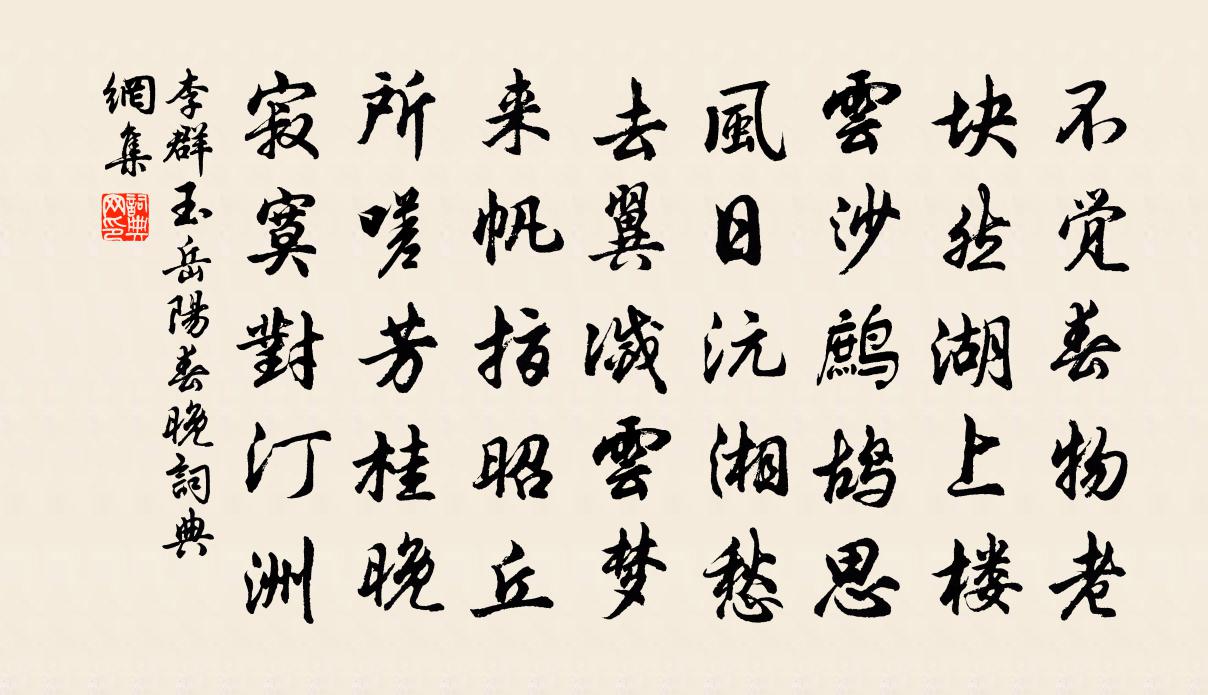 不觉春物老
块然湖上楼
雲沙鷓鸪思
風日沅湘愁
去翼滅雲梦
来帆指昭丘
所嗟芳桂晚
寂寞對汀洲
李群玉岳陽春晚詞典
網集
詞典
网印